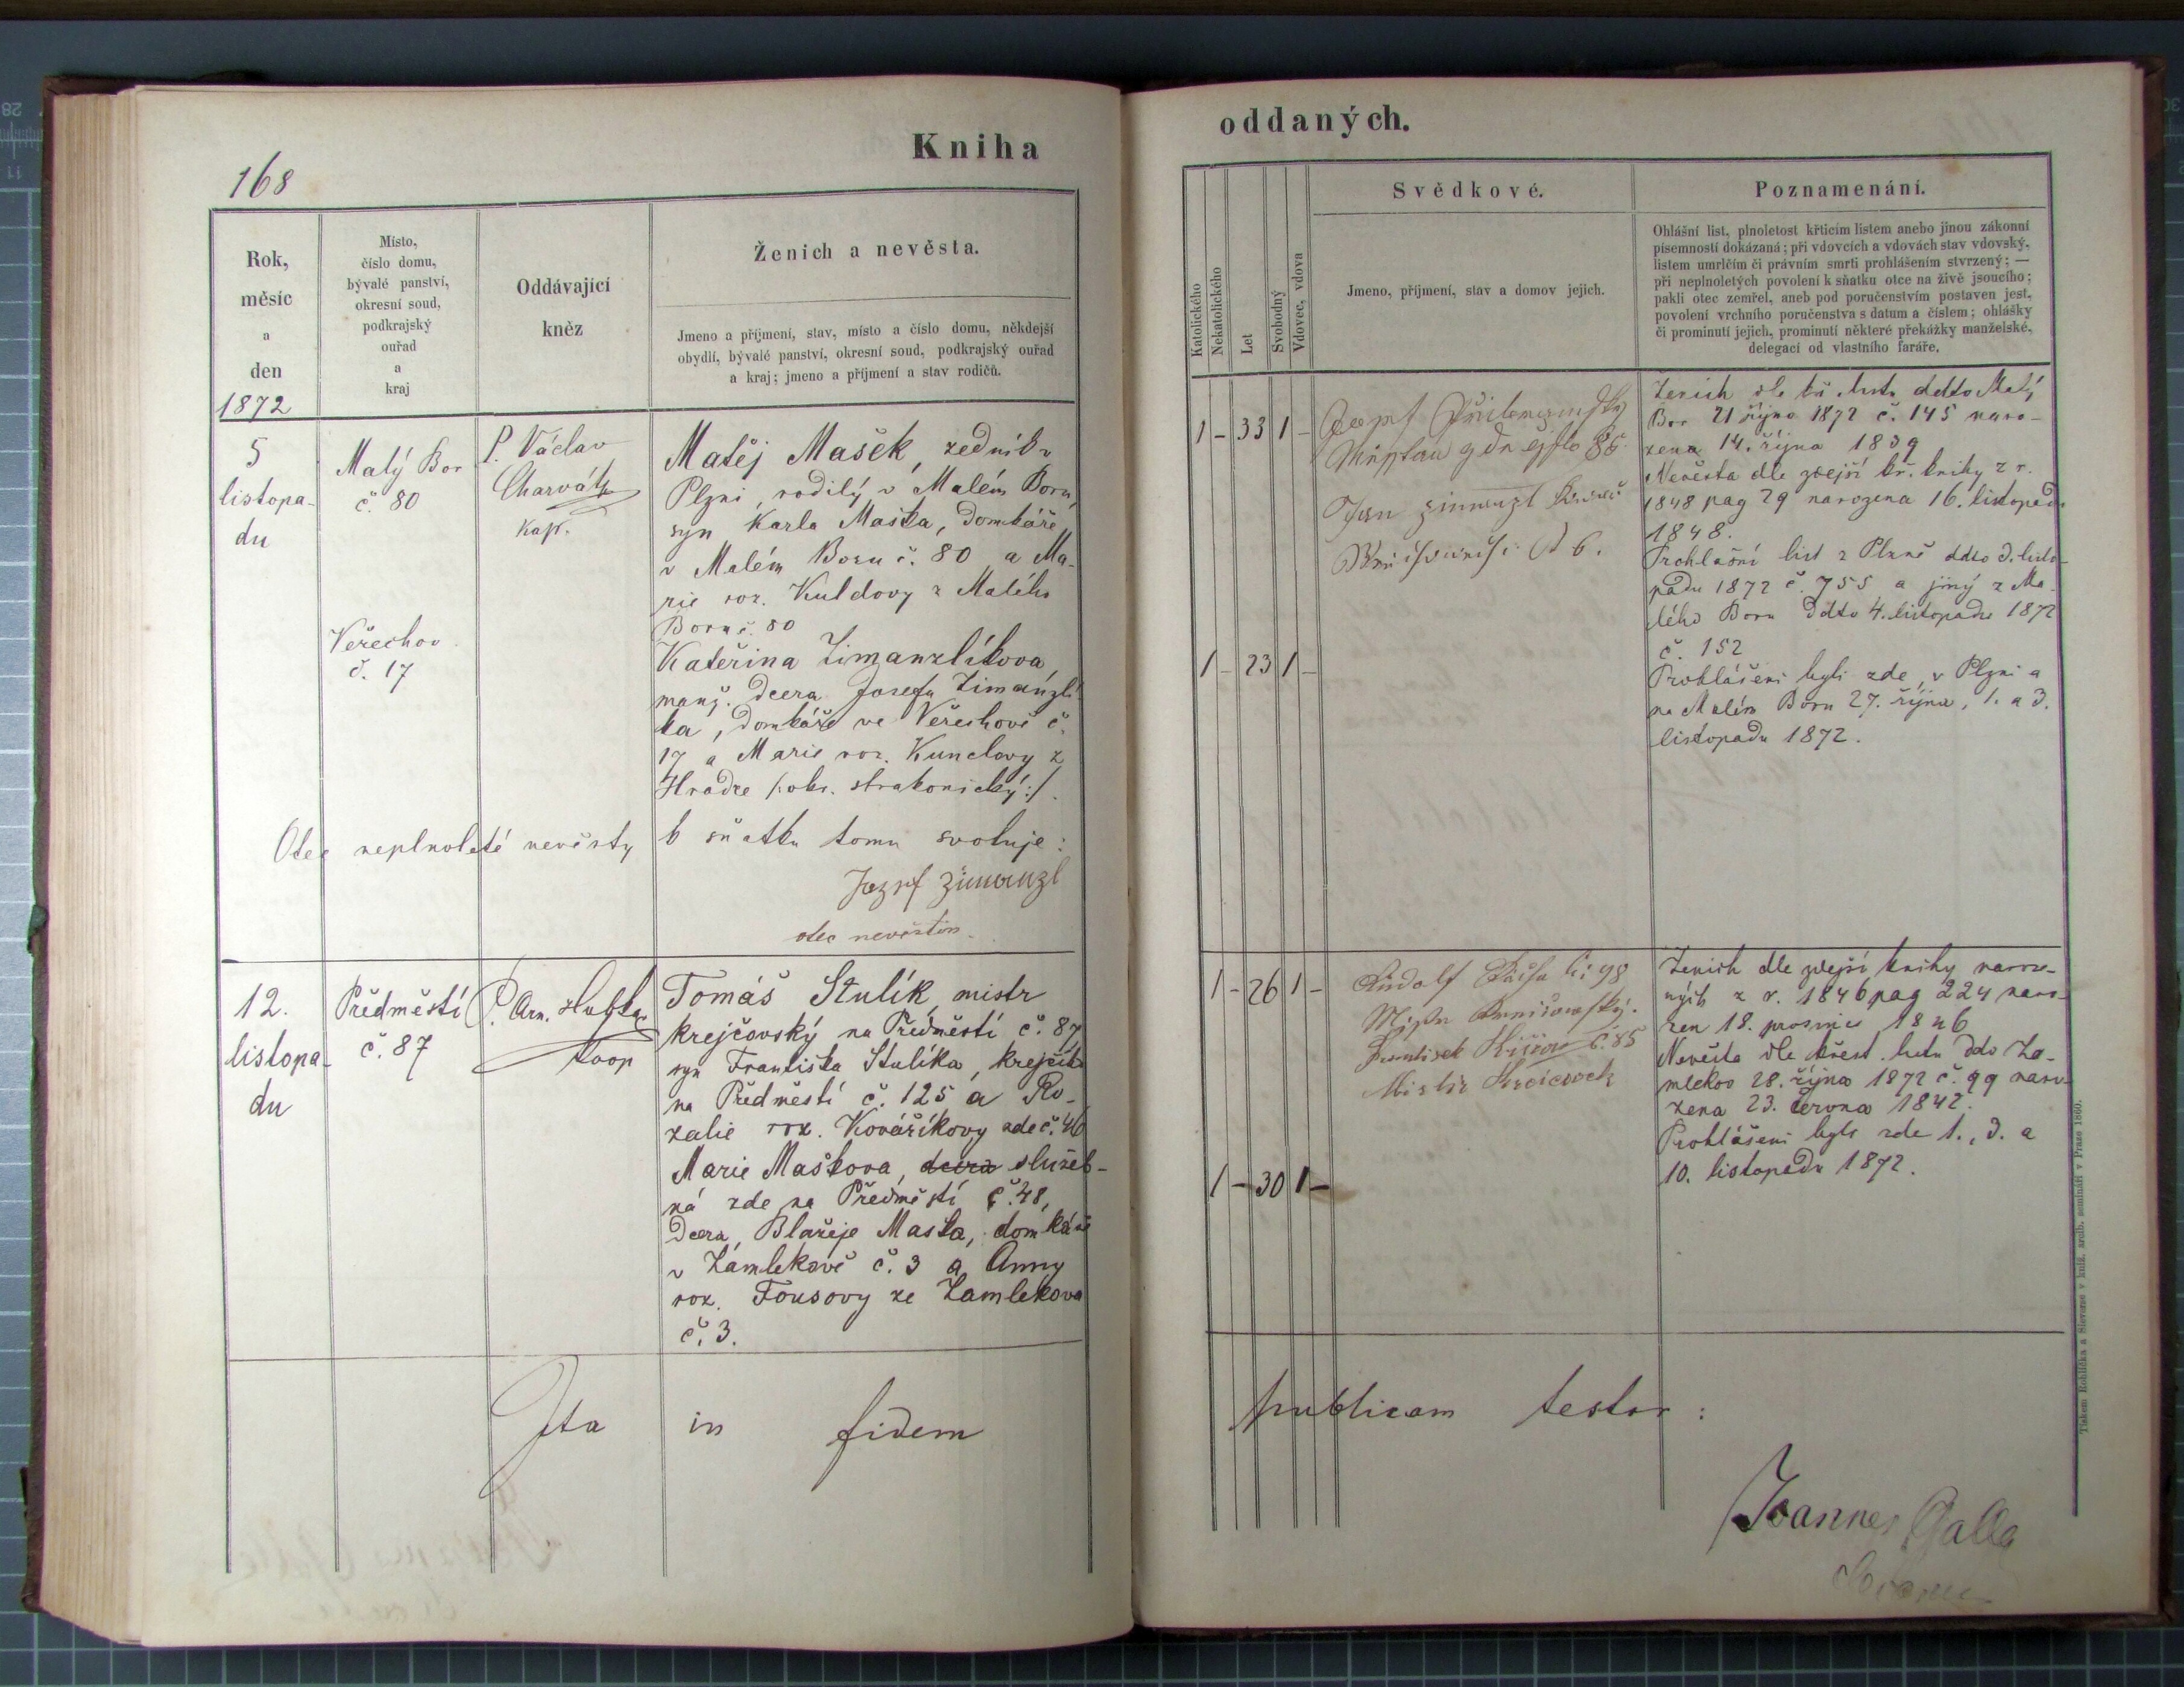 168
Kniha
Rok,
měsíc
a
den
1872
Místo,
číslo domu,
bývalé panství,
okresní soud,
podkrajský
ouřad
a
kraj
Oddávající
kněz
Ženich a nevěsta.
Jmeno a příjmení, stav, místo a číslo domu, někdejší
obydlí, bývalé panství, okresní soud, podkrajský ouřad
a kraj; jmeno a příjmení a stav rodičů.
5
listopa-
du
Malý Bor
č. 80
Veřechov
č. 17
P. Václav
Charvát
kap.
Matěj Mašek, zedník v
Plzni, rodilý v Malém Boru,
syn Karla Maška, domkáře
v Malém Boru č. 80 a Ma-
rie roz. Kuldovy z Malého
Boru č. 80
Kateřina Zimanzlíkova,
manž. dcera Josefa Zimanzlí-
ka, domkáře ve Veřechově č.
17 a Marie roz. Kunclovy z
Hradce /: okr. strakonický :/.
Otec neplnoleté nevěsty k sňatku tomu svoluje:
Jozef Zimanzl
otec nevěstin.
12.
listopa-
du
Předměstí
č. 87
P. Arn.
koop
Tomáš Stulík, mistr
krejčovský na Předměstí č. 87
syn Františka Stulíka, krejčího
na Předměstí č. 125 a Ro-
zalie roz. Kováříkovy zde č. 46
Marie Maškova, dcera služeb-
ná zde na Předměstí č. 48,
dcera Blažeje Maška, domkáře
v Zámlekově č. 3 a Anny
roz. Fousovy ze Zamlekova
č. 3.
Ita in fidem
oddaných.
Katolického
Nekatolického
Let
Svobodný
Vdovec, vdova
Svědkové.
Jmeno, příjmení, stav a domov jejich.
Poznamenání.
Ohlášní list, plnoletost křticím listem anebo jinou zákonní
písemností dokázaná; při vdovcích a vdovách stav vdovský,
listem umrlčím či právním smrti prohlášením stvrzený; —
při neplnoletých povolení k sňatku otce na živě jsoucího;
pakli otec zemřel, aneb pod poručenstvím postaven jest,
povolení vrchního poručenstva s datum a číslem; ohlášky
či prominutí jejich, prominutí některé překážky manželské,
delegací od vlastního faráře.
1 - 33 1 -
Jozef
85
Jan Zimanzl
6.
Ženich dle kř. listu ddto Malý
Bor 21 října 1872 č. 145 naro-
zena 14. října 1839
Nevěsta dle zdejší kř. knihy z r.
1848 pag 29 narozena 16. listopadu
1848.
Prohlašní list z Plzně ddto 3. listo-
padu 1872 č. 755 a jiný z Ma-
lého Boru ddto 4. listopadu 1872
č. 152
Prohlášeni byli zde, v Plzni a
na Malém Boru 27. října, 1. a 3.
listopadu 1872.
1 - 23 1 -
1 - 26 1 -
Rudolf č: 98
Frantisek č. 85
Ženich dle zdejší knihy naroze-
ných z r. 1846 pag 224 naro-
zen 18. prosince 1846
Nevěsta dle křest. listu ddo Za-
mlekov 28. října 1872 č. 99 naro-
zena 23. června 1842.
Prohlášeni byli zde 1., 3. a
10. listopadu 1872.
1 - 30 1 -
publicam testor:
Joannes Galla
Tiskem Rohlíčka a Sieverse v kníž. arcib. semináři v Praze 1860.